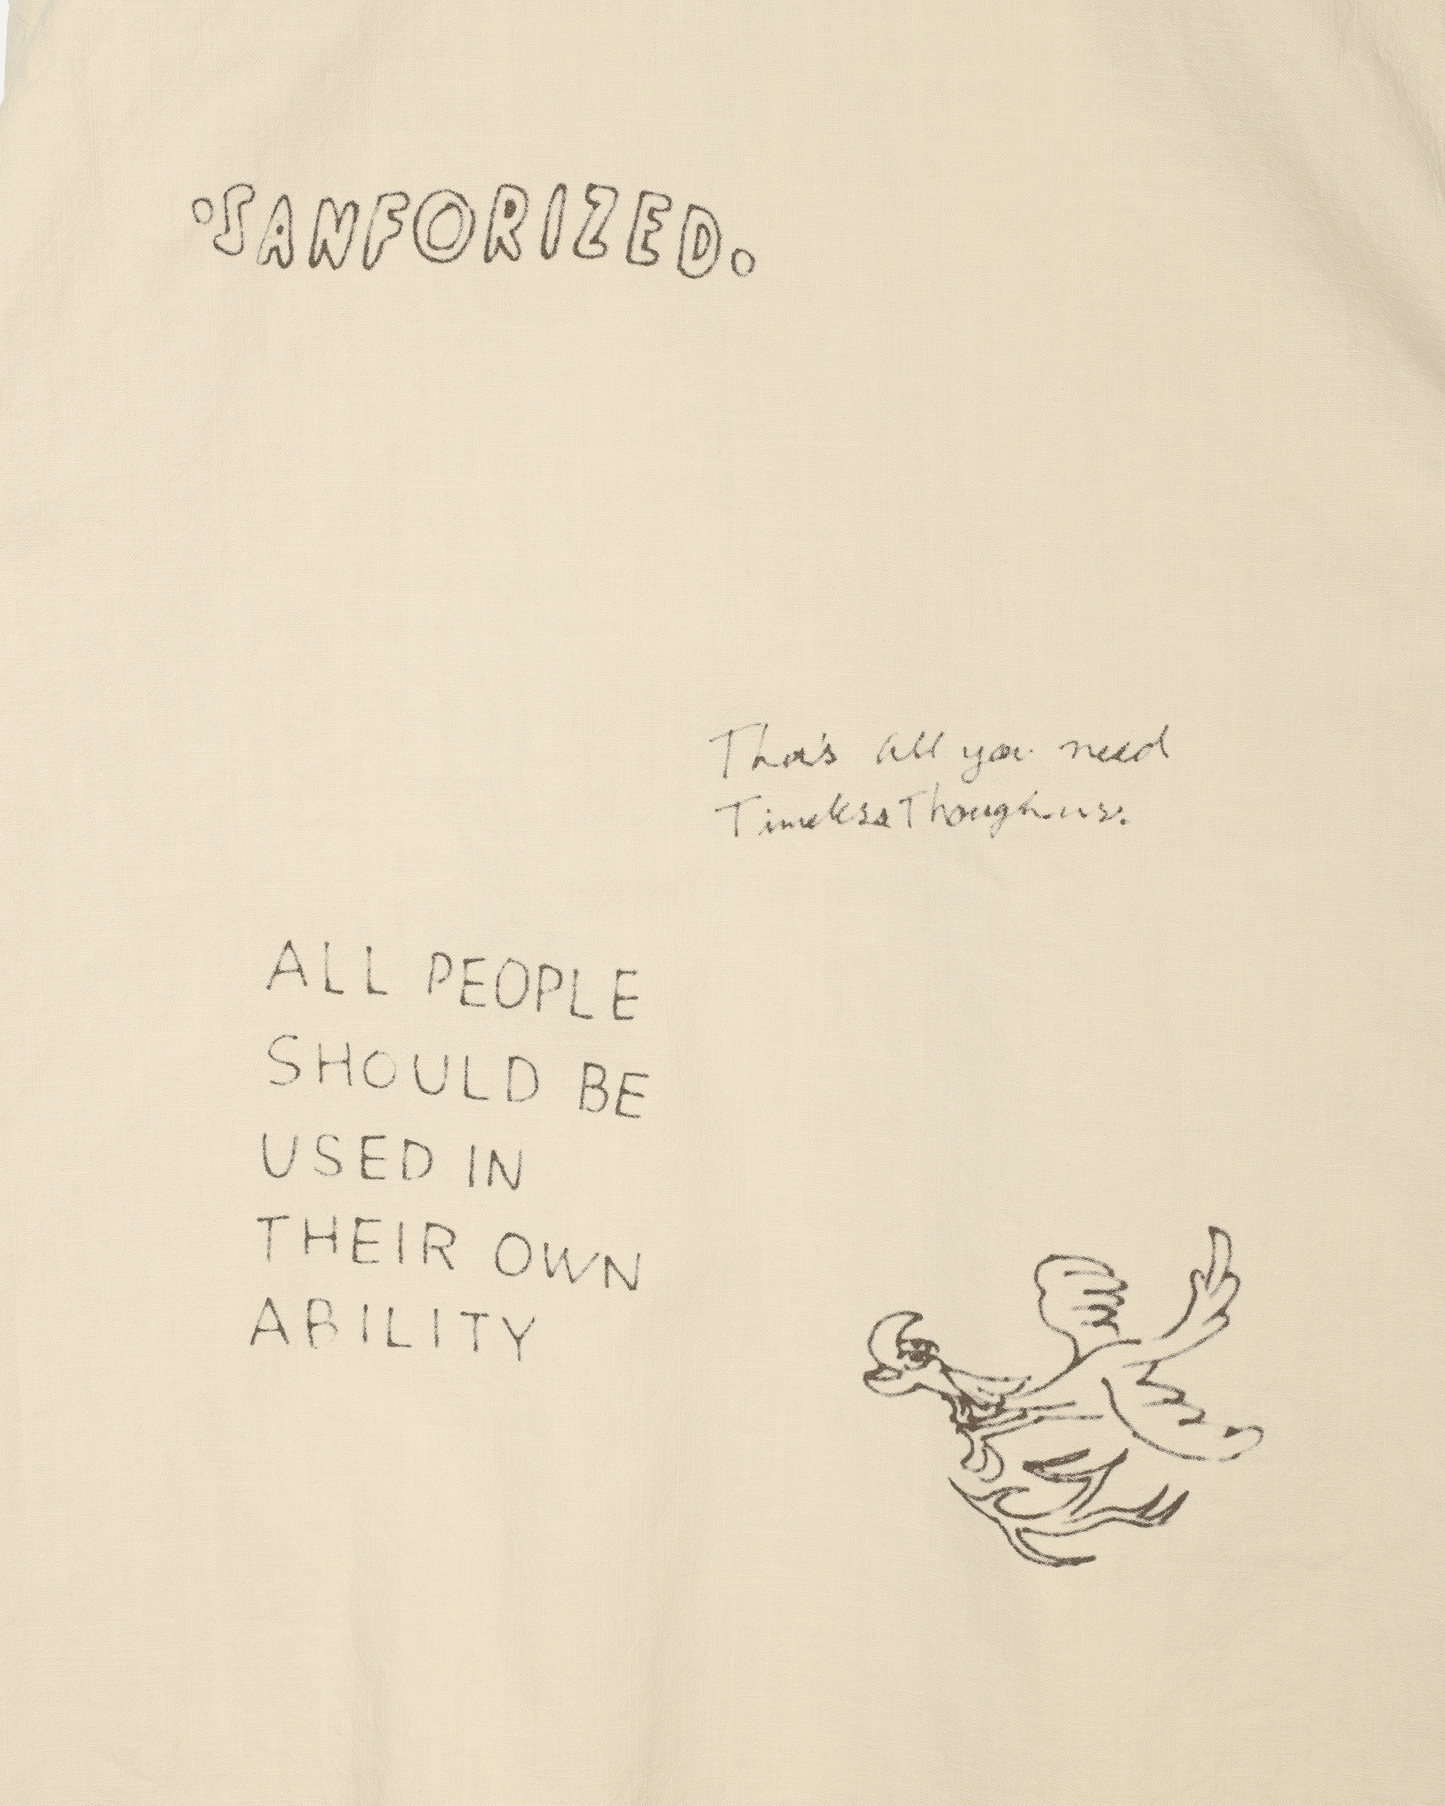 SANFORIZED.
That's all you need
Timeless Thoughts.
ALL PEOPLE
SHOULD BE
USED IN
THEIR OWN
ABILITY